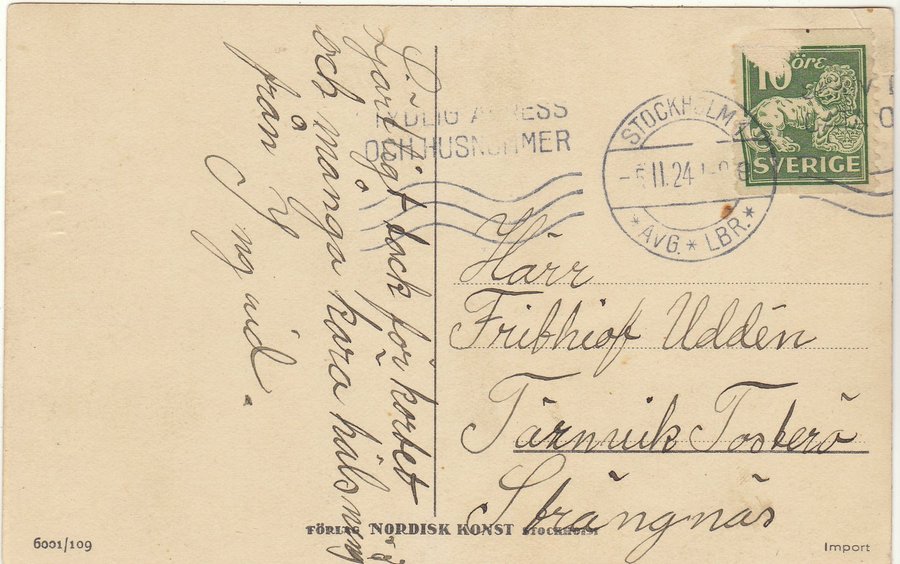 Hjärtligt tack för kortet
och många kära hälsning
från Yngvid.
TYDLIG ADRESS
OCH HUSNUMMER
STOCKHOLM
11.24
AVG. LBR.
10 öre
SVERIGE
Härr
Frithiof Uddén
Tärnvik Tosterö
Strängnäs
FÖRLAG NORDISK KONST STOCKHOLM
6001/109
Import